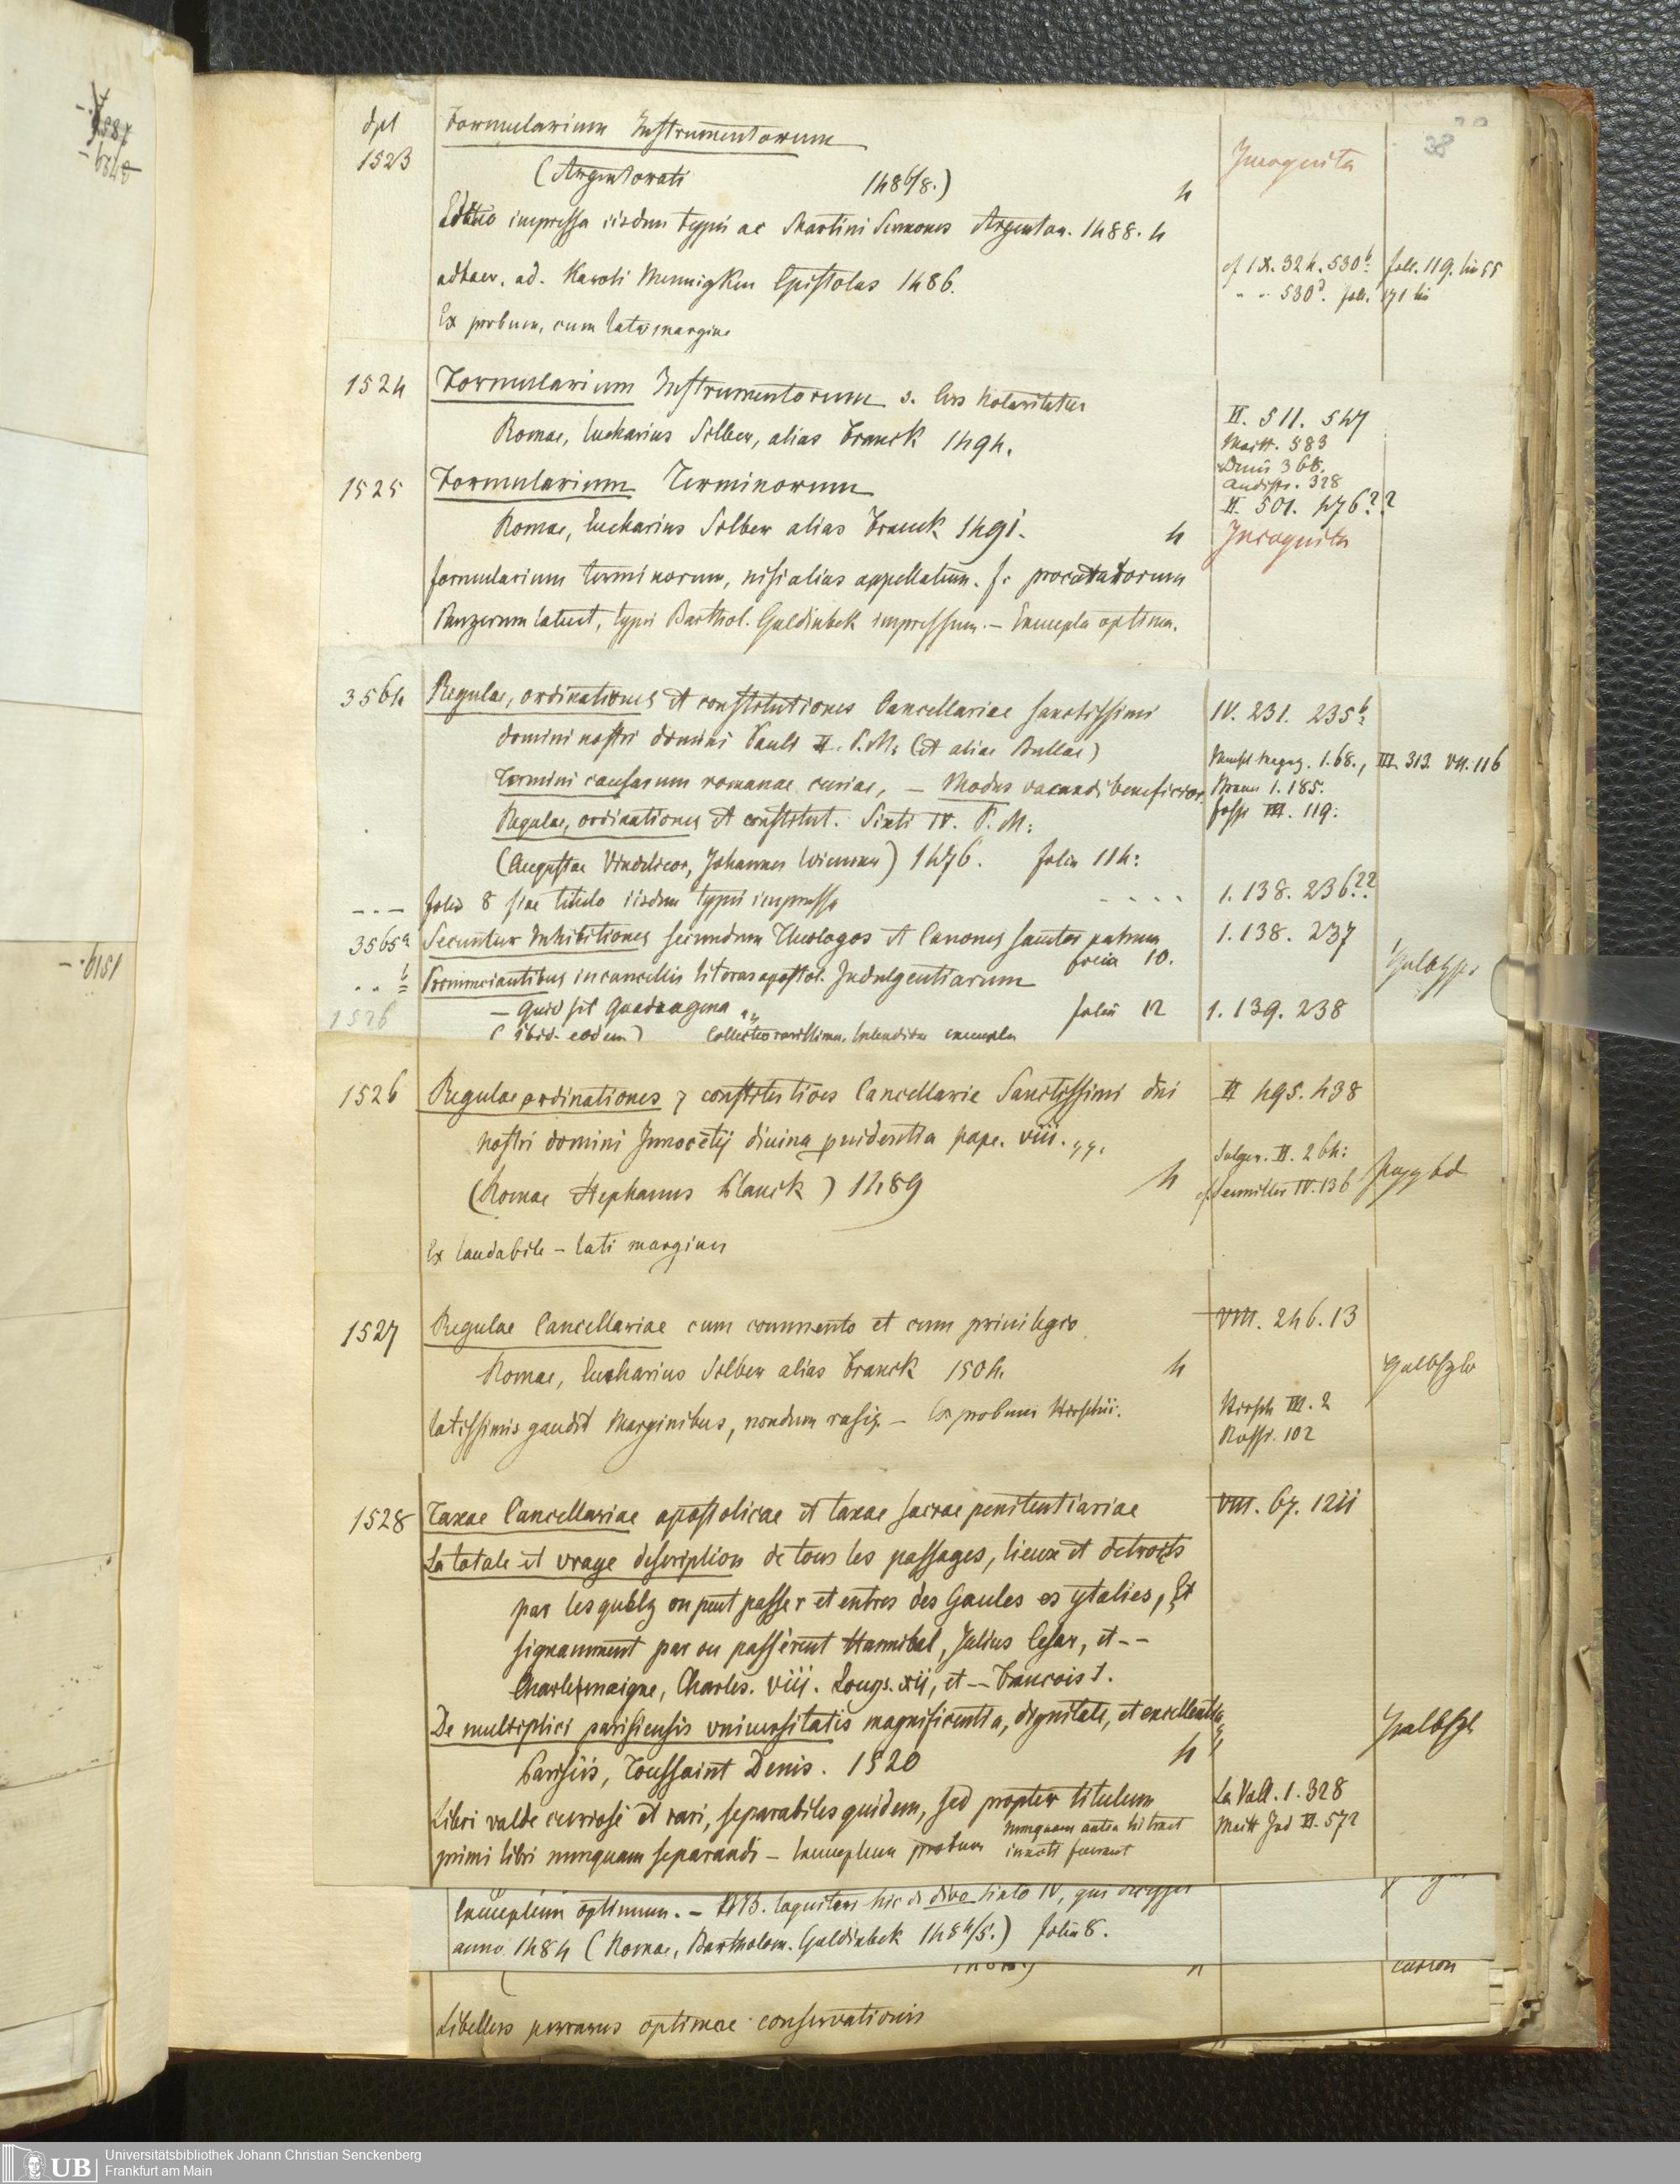 dpl Formularium Instrumentorum
1523 (Argentorati 1486/8.) 4 Incognita
38
Editio impressa iisdem typis ac Martini Sermones Argentor. 1488. 4
adhaer. ad. Karoli Mennigken Epistolas 1486. cf IX. 324. 530b: foll. 119.
530d. foll. 171
Ex probum, cum lato margine
1524 Formularium Instrumentorum s. Ars Notariatus
Romae, Eucharius Silber, alias Franck 1494. II. 511. 547
Maitt. 583
Denis 368.
Audiffr. 328
1525 Formularium Terminorum II. 501. 476??
Romae, Eucharius Silber alias Franck 1491. 4 Incognita
formularium terminorum, nisi alias appellatum. f. procuratorum
Panzerum latuit, typis Barthol. Guldinbek impressum. – Exempla optima.
3564 Regulae, ordinationes et constitutiones Cancellariae sanctissimi IV. 231. 235b:
domini nostri domini Pauli II. P.M: (et aliae Bullae)
Termini causarum romanae curiae, – Modus vacandi beneficior. 1.68., III. 313. VII. 116
Braun 1. 185.
Regulae, ordinationes et constitut. Sixti IV. P. M: III. 119:
(Augustae Vindelicor, Johannes Wiener) 1476. folia 114:
– – – folia 8 sine titulo iisdem typis impressa - - - - 1. 138. 236??
3565a Secuntur Inhibitiones secundum Theologos et Canones sanctor patrum 1. 138. 237
folia 10.
b Pronunciantibus in cancellis literas apostol. Indulgentiarum
– Quid sit Quadragena „ folia 12 1. 139. 238
1526 (ibid. eodem) Collectio rarissima, splendida exempla
1526 Regulae ordinationes & constitutiões Cancellarie Sanctissimi dni II 495. 438
nostri domini Innocētij diuina puidentia pape. viii. „.
Solger. II. 264:
(Romae Stephanus Planck) 1489 4 cf. Seemiller IV. 136
Ex laudabile – lati margines
1527 Regulae Cancellariae cum commento et cum privilegio VIII. 246. 13
Romae, Eucharius Silber alias Franck 1504. 4
latissimis gaudet Marginibus, nondum rasis – Ex probum Hirschii. Hirsch III. 2
102
1528 Taxae Cancellariae apostolicae et taxae sacrae penitentiariae VIII. 67. 1211
La totale et vraye description de tous les passages, lieux et detroits
par lesquelz on peut passer et entrer des Gaules es ytalies, Et
signamment par ou passèrent Hannibal, Julius Cesar, et - -
Charlesmaigne, Charles. viii. Louys. xii, et - - Francois 1.
De multiplici parisiensis vniuersitatis magnificentia, dignitate, et excellentia
Parisiis, Toussaint Denis. 1520 4
Libri valde curiosi et rari, separabiles quidem, sed propter titulum La Vall. 1. 328
primi libri nunquam separandi – Exemplum probum nunquam antea hi tract Maitt Ind II. 572
inuoti fuerunt
Exemplum optimum. – NB. loquitur hic de divo Sixto IV, qui
anno 1484 (Romae, Bartholom. Guldinbek 1484/5.) folia 8.
Libellus perrarus optimae conservationis
Universitätsbibliothek Johann Christian Senckenberg
Frankfurt am Main
UB